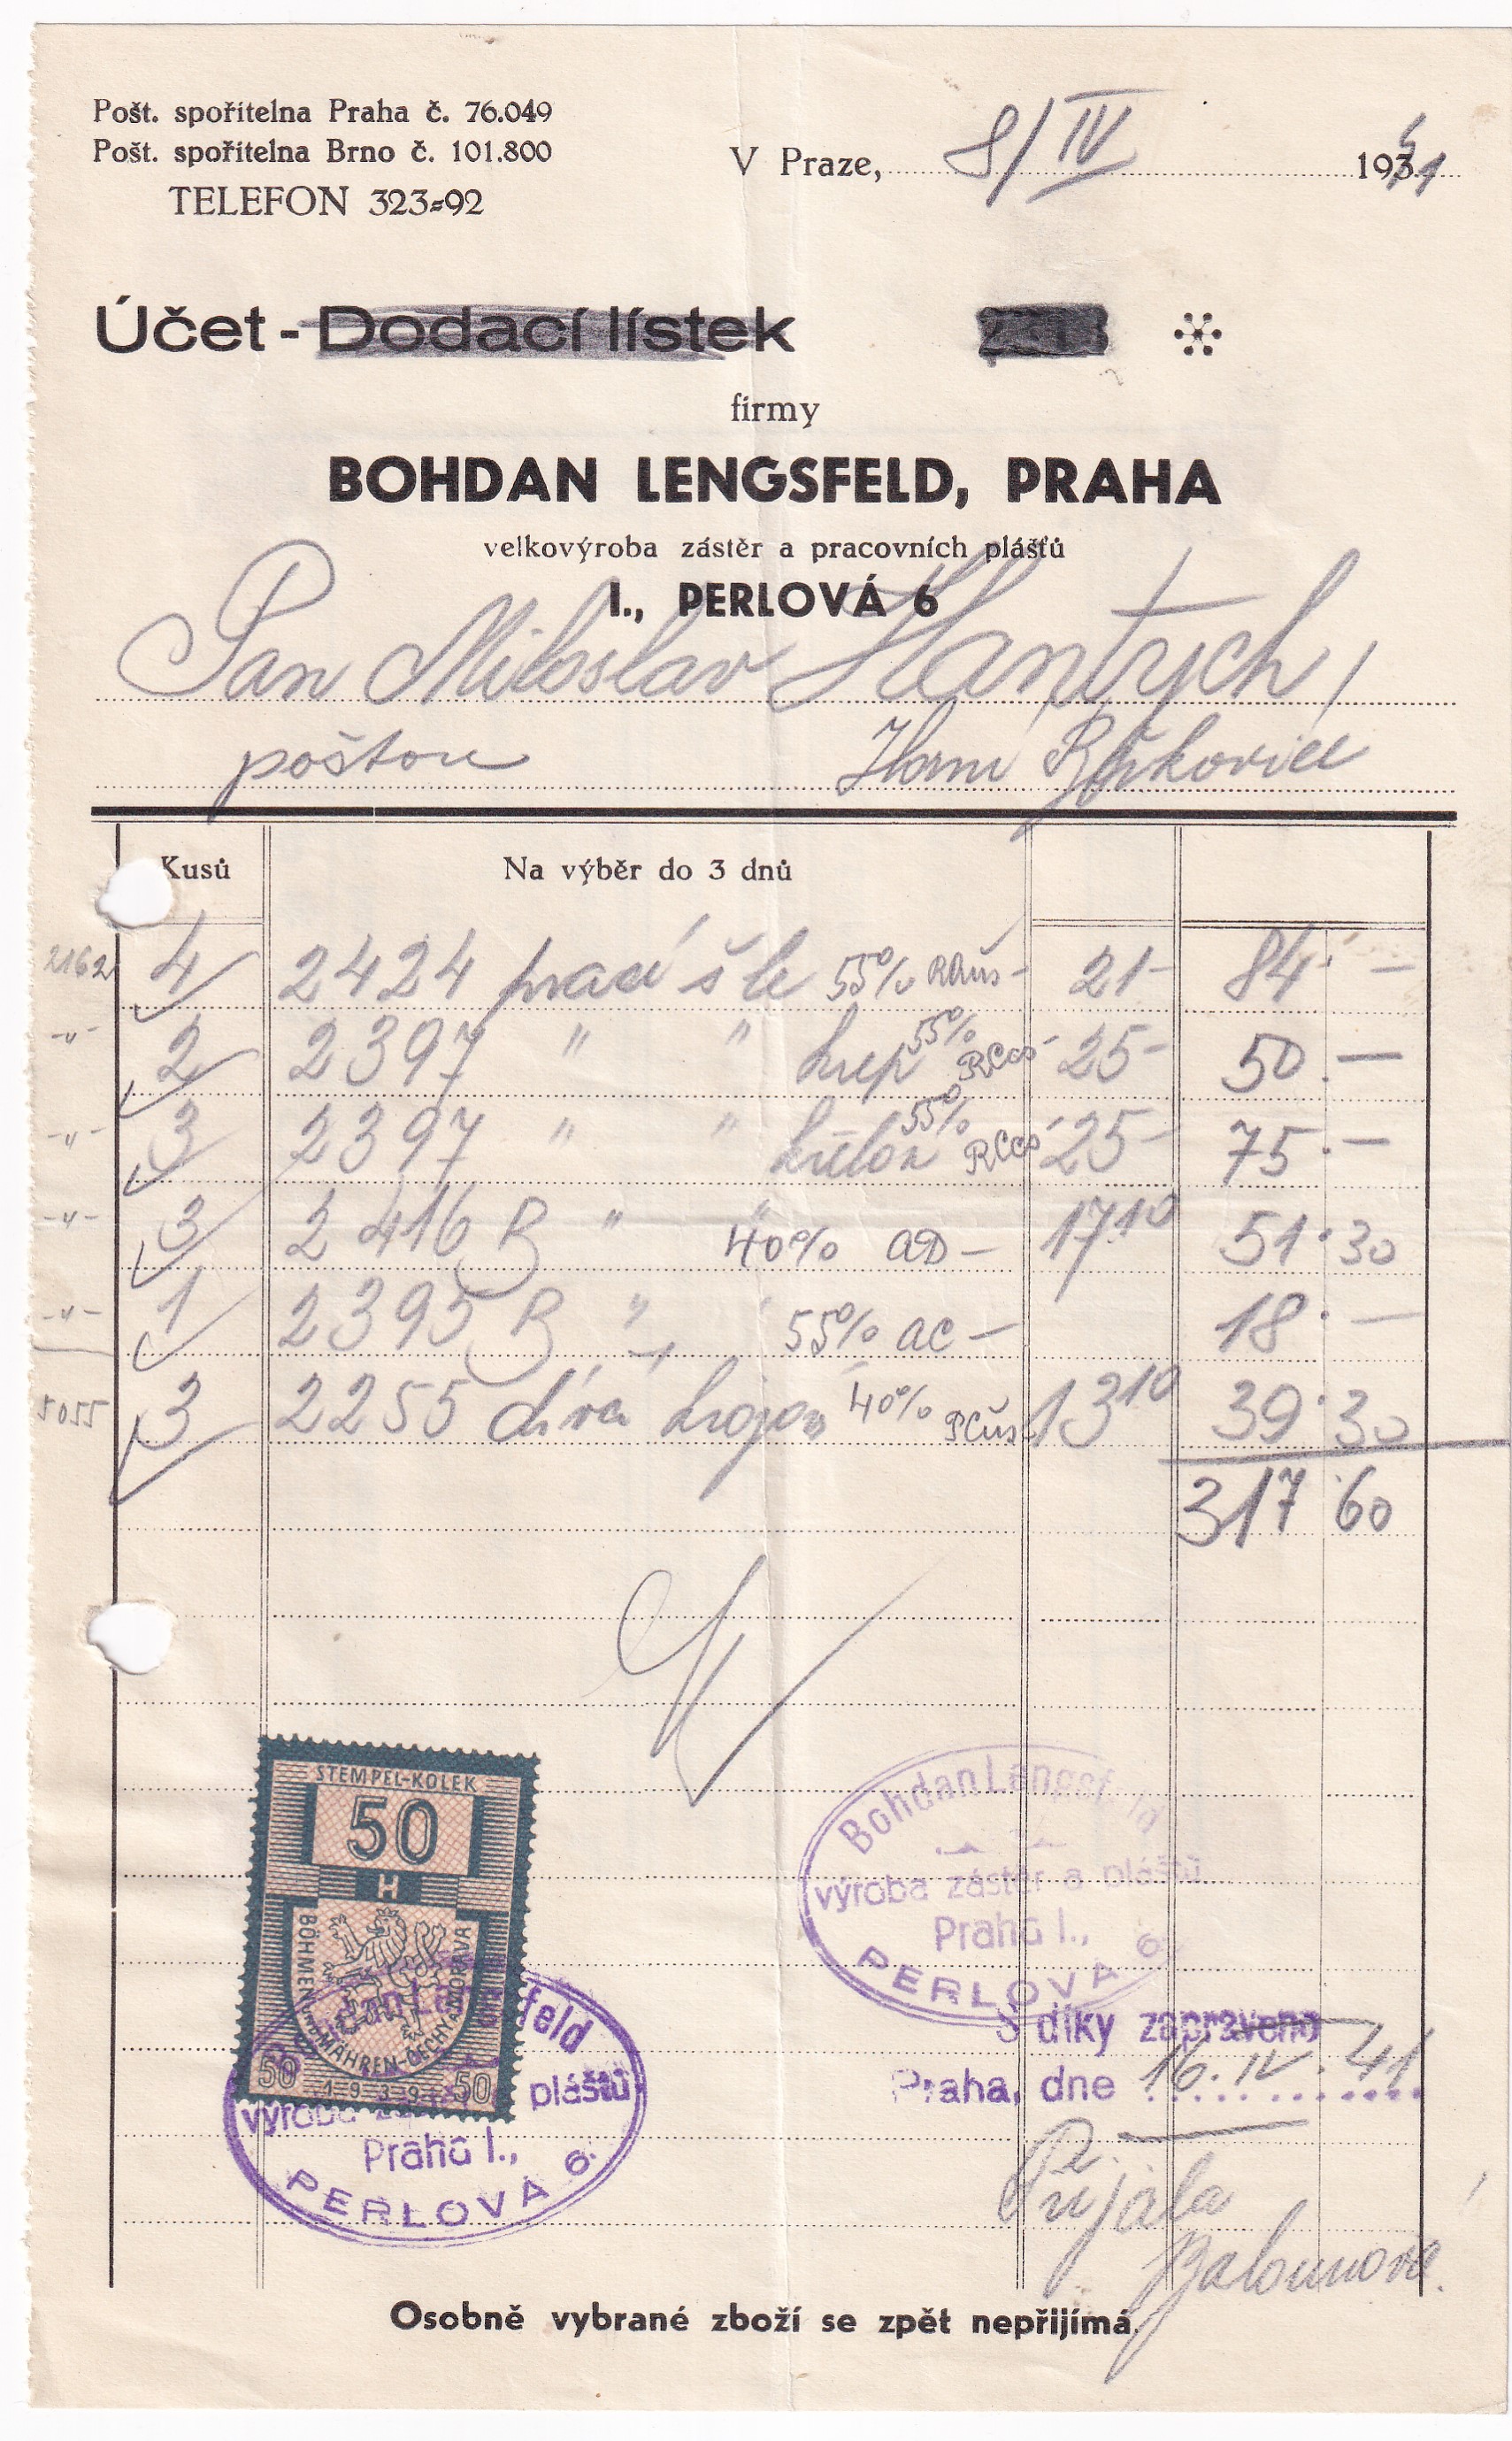 Pošt. spořitelna Praha č. 76.049
Pošt. spořitelna Brno č. 101.800
TELEFON 323-92
V Praze, 8/IV 1941
Účet - Dodací lístek
firmy
BOHDAN LENGSFELD, PRAHA
velkovýroba zástěr a pracovních plášťů
I., PERLOVÁ 6
Pan Miloslav Hantych,
poštou Horní
Kusů Na výběr do 3 dnů
2162 4 2424 prací šle 55% 21- 84.-
-"- 2 2397 " " krep 55% 25- 50.-
-"- 3 2397 " " 55% 25- 75.-
-"- 3 2416 B " " 40% AD- 17 10 51.30
-"- 1 2395 B " " 55% AC- 18.-
5055 3 2255 40% 13 10 39.30
317 60
STEMPEL-KOLEK
50
H
BÖHMEN UND MÄHREN-ČECHY A MORAVA
50 1939 50
Bohdan Lengsfeld
výroba zástěr a plášťů
Praha I.,
PERLOVA 6
Bohdan Lengsfeld
výroba zástěr a plášťů
Praha I.,
PERLOVA 6.
S díky zapraveno
Praha, dne 16.IV.41
Přijala
Balounová.
Osobně vybrané zboží se zpět nepřijímá.